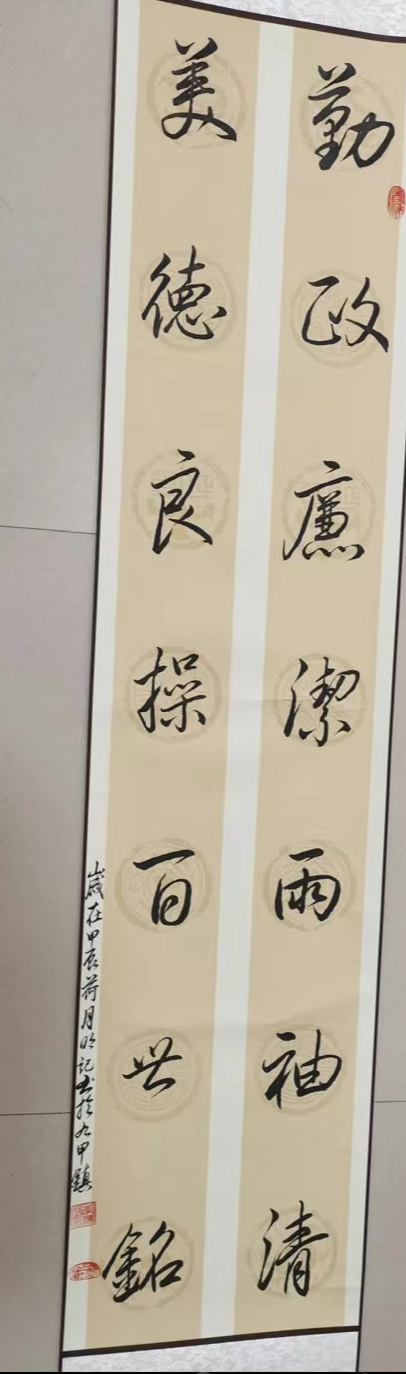 勤政廉潔兩袖清
美德良操百世銘
歲在甲辰荷月明記書於九甲鎮